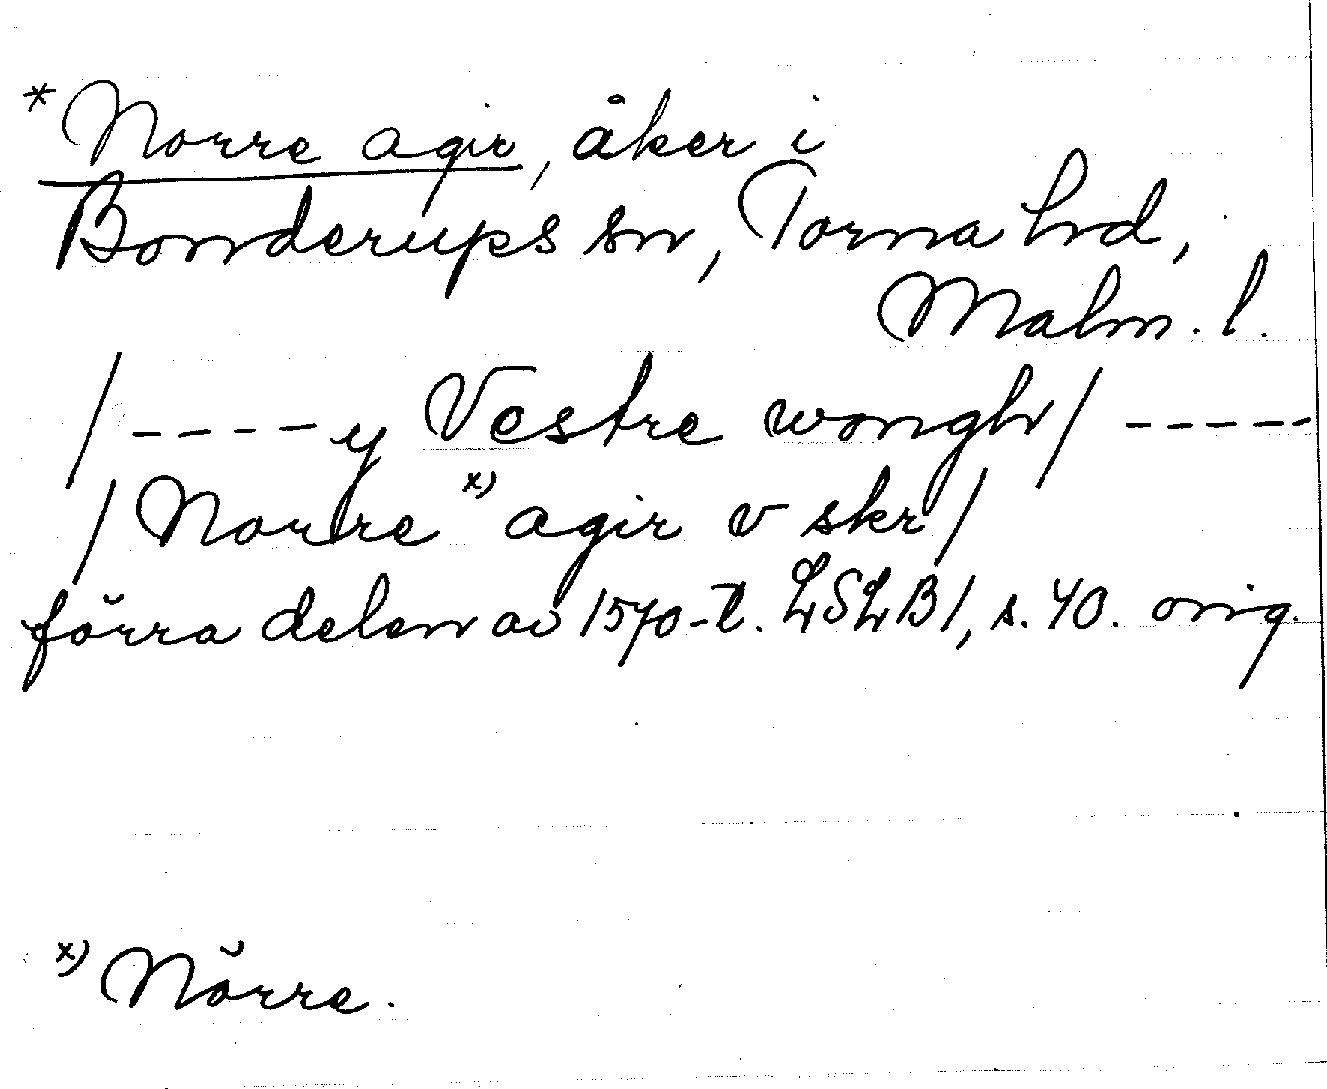 * Norre agir, åker i
Bonderups sn, Torna hd,
Malm. l.
/ ----y Vestre wongh / -----
/ Norre x) agir v skr /
förra delen av 1570-t. LSLB1, s. 40. orig.
x) Nŏrre.